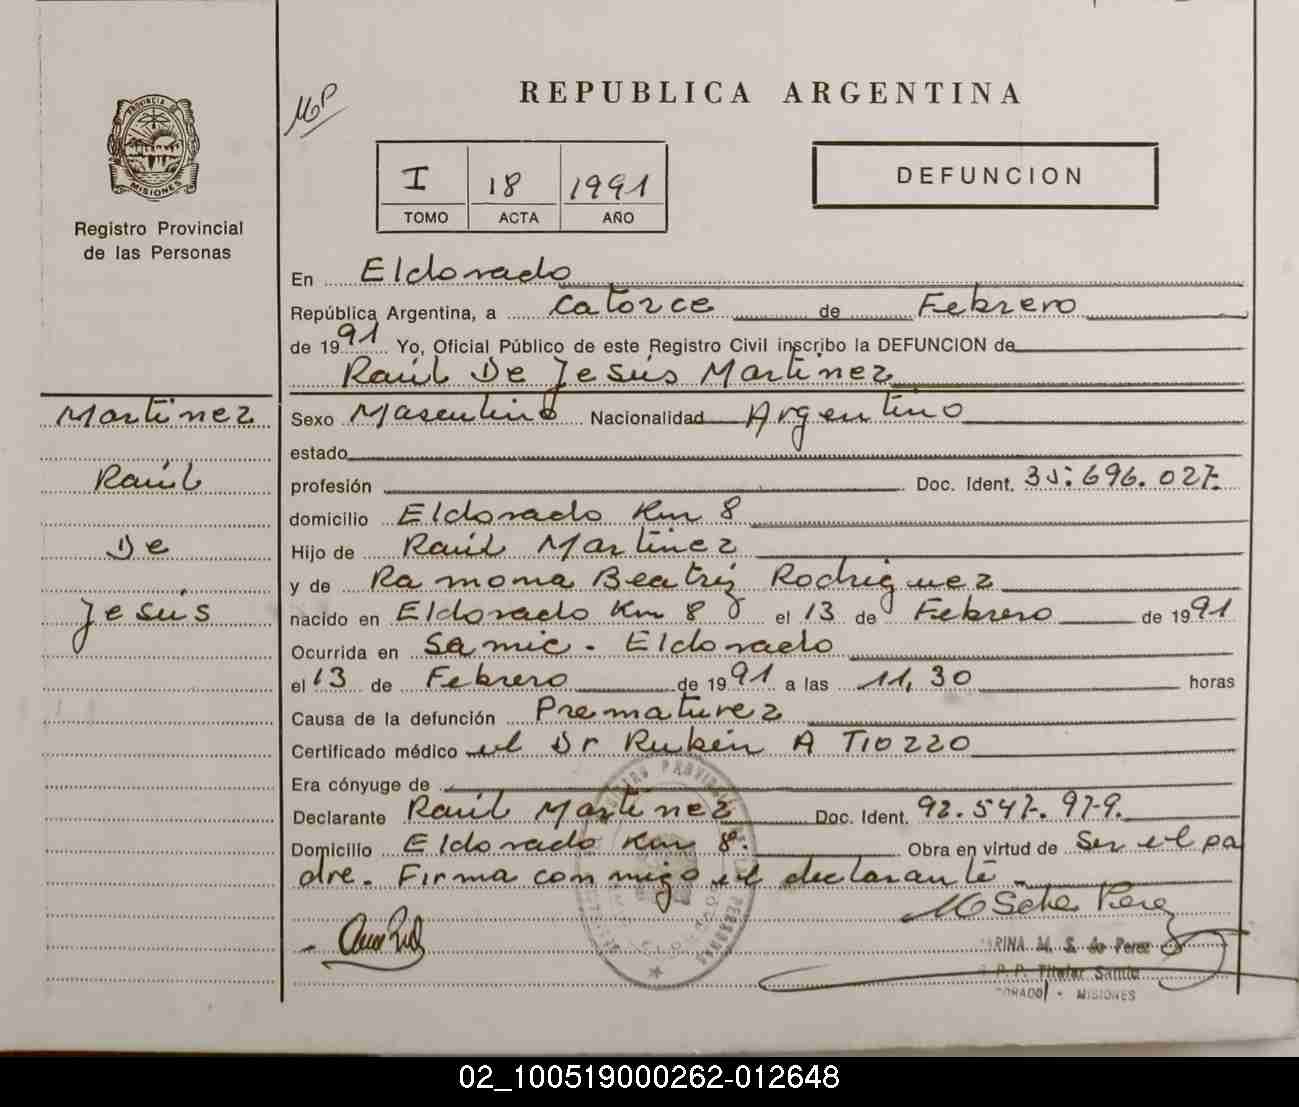 MP
REPUBLICA ARGENTINA
PROVINCIA DE
MISIONES
Registro Provincial
de las Personas
I 18 1991
TOMO ACTA AÑO
DEFUNCION
En Eldorado
República Argentina, a catorce de Febrero
de 1991 Yo, Oficial Público de este Registro Civil inscribo la DEFUNCION de
Raúl De Jesús Martinez
Martinez
Raúl
De
Jesús
Sexo Masculino Nacionalidad Argentino
estado
profesión Doc. Ident. 35.696.027.
domicilio Eldorado Km 8
Hijo de Raúl Martinez
y de Ramona Beatriz Rodriguez
nacido en Eldorado Km 8 el 13 de Febrero de 1991
Ocurrida en Samic. Eldorado
el 13 de Febrero de 1991 a las 11,30 horas
Causa de la defunción Prematurez
Certificado médico el Dr Rubén A Tiozzo
Era cónyuge de
Declarante Raúl Martinez Doc. Ident. 92.547.979.
Domicilio Eldorado Km 8. Obra en virtud de Ser el pa
dre. Firma conmigo el declarante.
RINA M. S. de Perez
Titular
DORADO - MISIONES
02_100519000262-012648